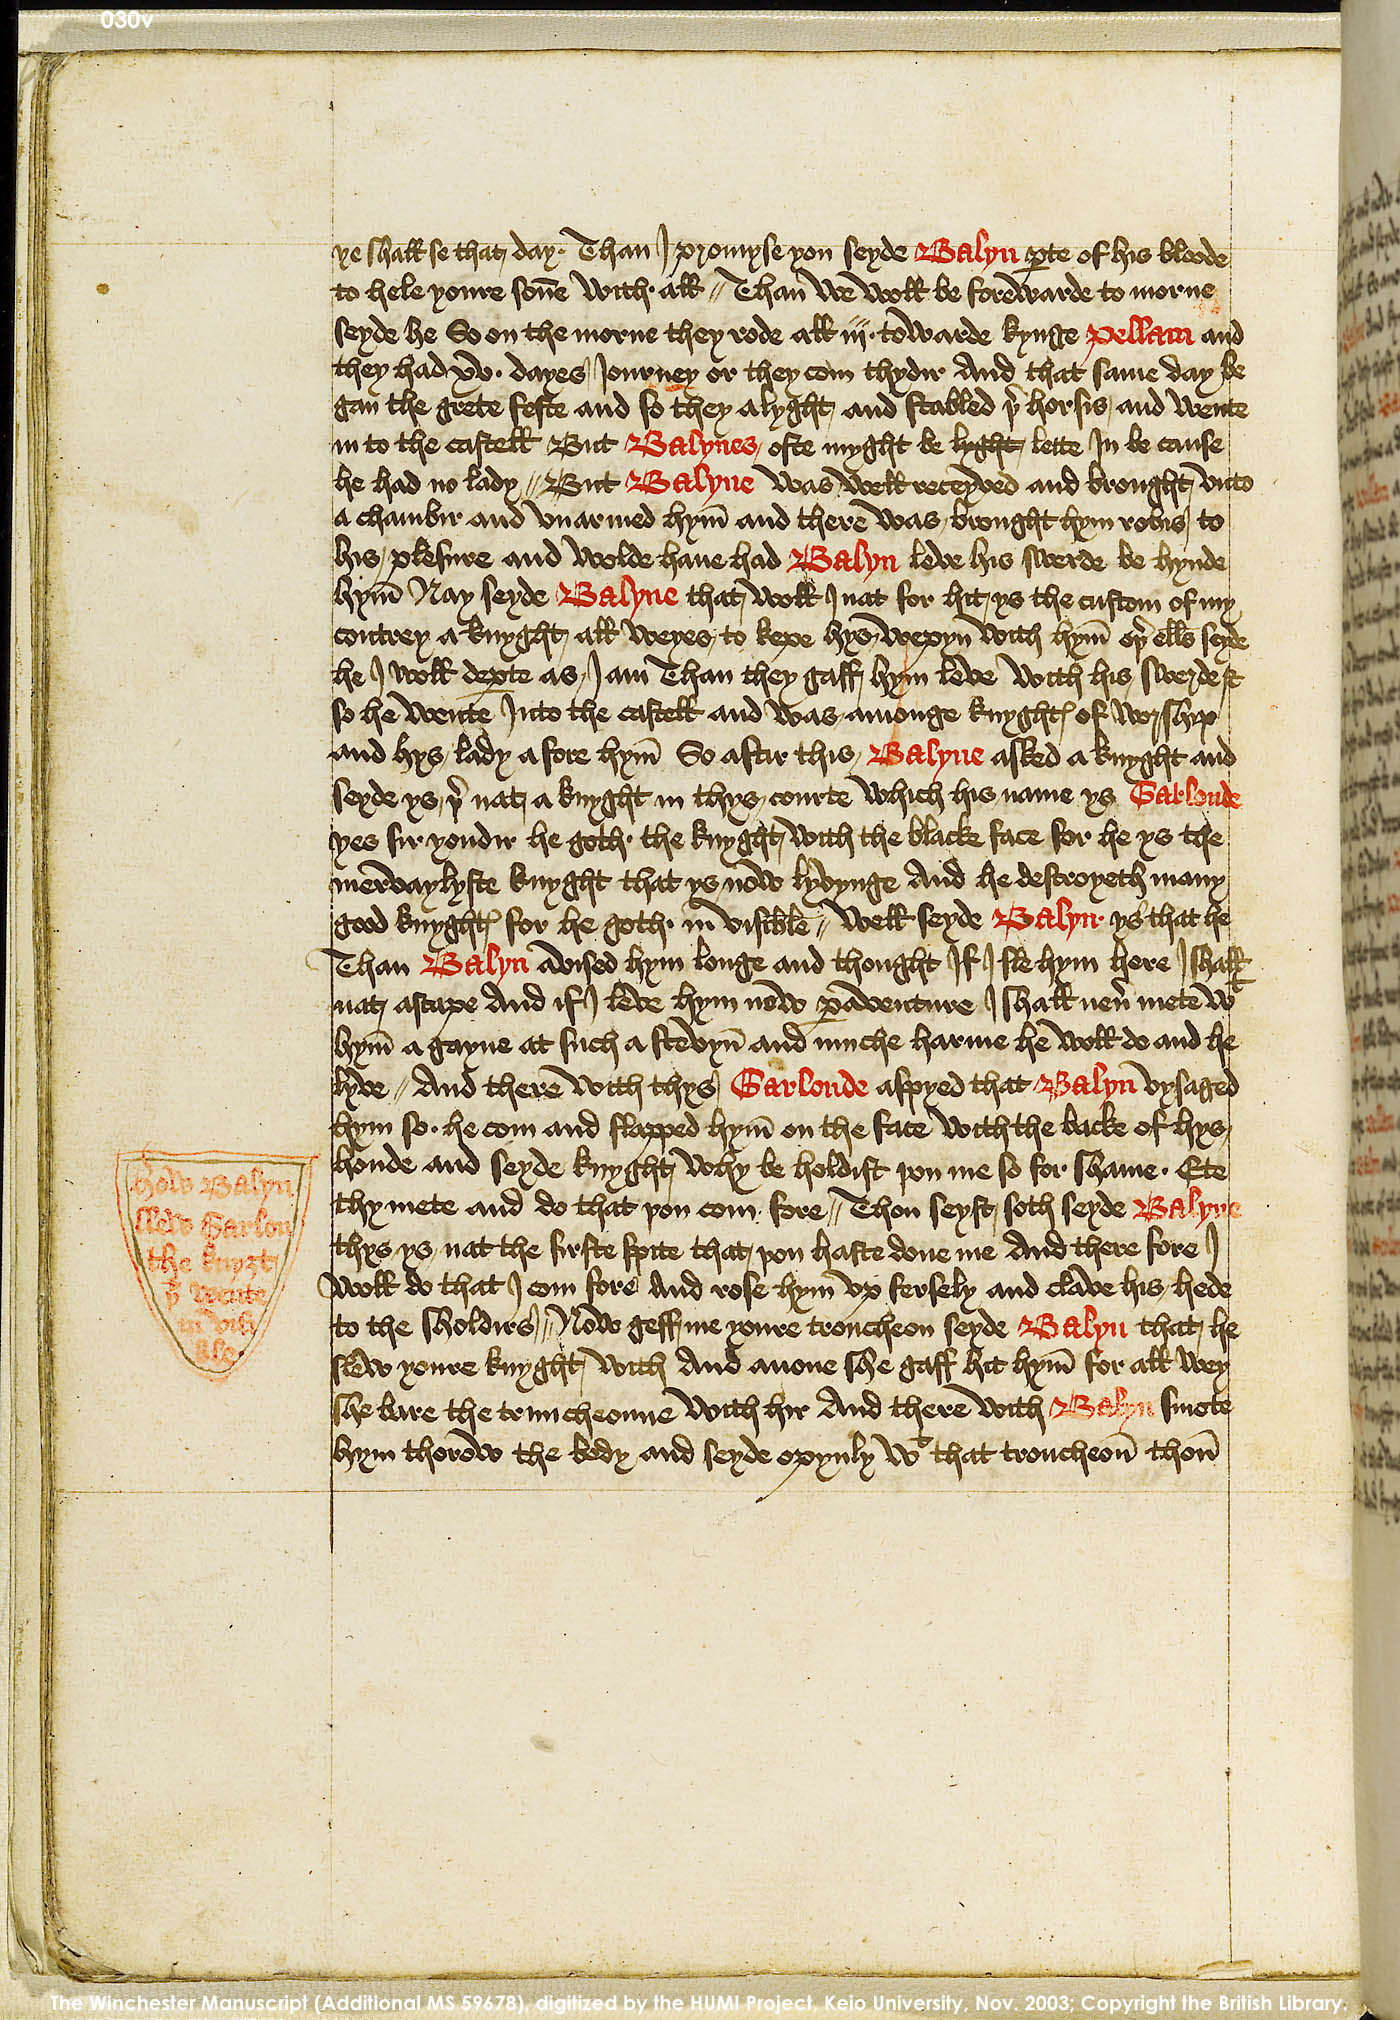 030v
ye shall se that day. Than I promyse you seyde Balyn p̱te of his bloode
to hele youre soñe with all // Than we woll be forewarde to morne
seyde he So on the morne they rode all iij. towarde kynge Pellam and
they had xv. dayes Journey or they com thydir And that same day be
gan the grete feste and so they alyght and stabled þ̉ horsis and wente
in to the castell But Balynes oste myght be lyght lette In be cause
he had no lady // But Balyne was well receyved and brought vnto
a chambir and vnarmed hym̄ and there was brought hym robis to
his plesure and wolde haue had Balyn leve his swerde be hynde
hym̄ Nay seyde Balyne that woll I nat for hit ys the custom of my
contrey a knyght all weyes to kepe hys wepyn with hym̄ oþ̉ ells seyde
he I woll dep̱te as I am Than they gaff hym leve with his swerde &
so he wente Into the castell and was amonge knyghtꝭ of worshyp
and hys lady a fore hym̄ So aftir this Balyne asked a knyght and
seyde ys þ̉ nat a knyght in thys courte which his name ys Garlonde
yes sir yondir he goth the knyght with the blacke face for he ys the
mervaylyste knyght that ys now lyvynge And he destroyeth many
good knyghtꝭ for he goth in visible // Well seyde Balyn ys that he
Than Balyn avised hym longe and thought If I sle hym here I shall
nat ascape And if I leve hym now p̱aventure I shall neủ mete wᵗ
hym̄ a gayne at such a stevyn̄ and muche harme he woll do and he
lyve // And there with thys Garlonde aspyed that Balyn vysaged
hym so. he com and slapped hym̄ on the face with the backe of hys
honde and seyde knyght why be holdist þou me so for shame. Ete
thy mete and do that þou com fore // Thou seyst soth seyde Balyne
thys ys nat the firste spite that þou haste done me And there fore I
woll do that I com fore And rose hym̄ vp fersely and clave his hede
to the sholdirs // Now geff me youre troncheon seyde Balyn that he
slew youre knyght with And anone she gaff hit hym̄ for all wey
she bare the truncheoune with hir And there with Balyn smote
hym thorow the body and seyde opynly wᵗ that troncheon̄ thou
how Balyn
slew Garlon
the knyȝt
þ̉ wente
in visi
ble
The Winchester Manuscript (Additional MS 59678), digitized by the HUMI Project, Keio University, Nov. 2003; Copyright the British Library.